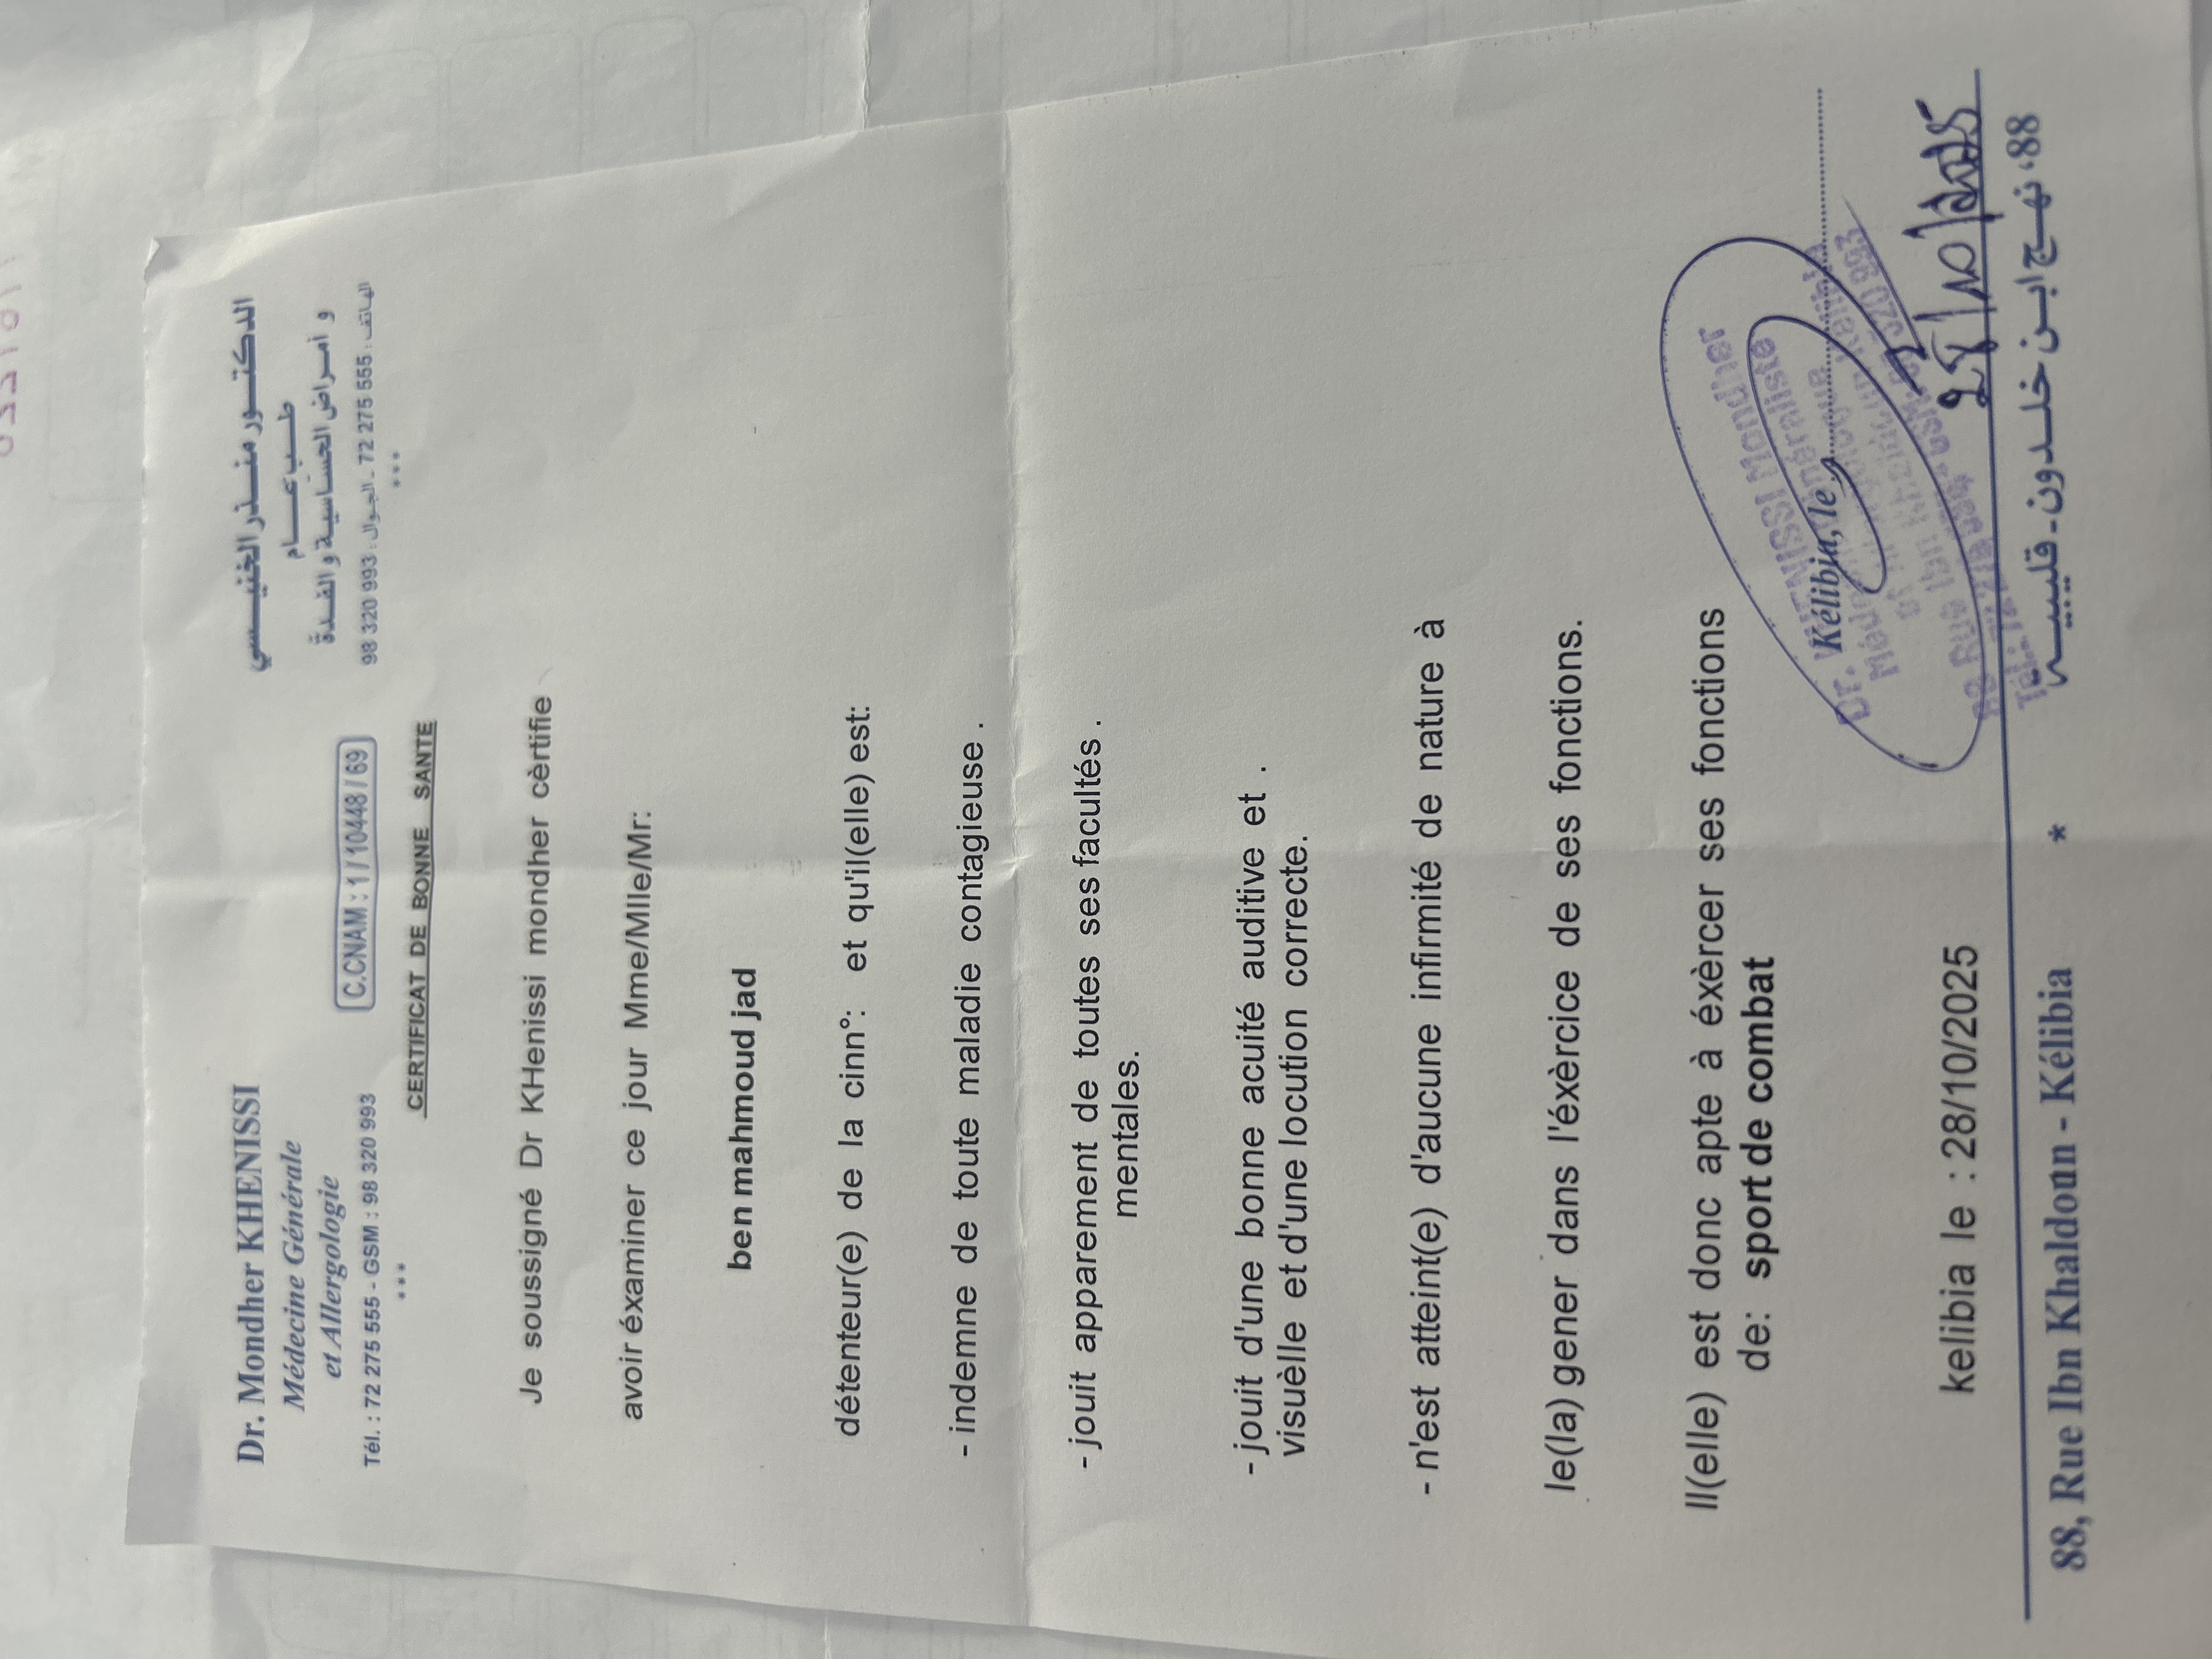 Dr. Mondher KHENISSI
Médecine Générale
et Allergologie
Tél. : 72 275 555 - GSM : 98 320 993
***
C.CNAM : 1 / 10448 / 69
الدكتور منذر الخنيسي
طب عام
و أمراض الحساسية و الغدة
الهاتف : 555 275 72 - الجوال : 993 320 98
***
CERTIFICAT DE BONNE SANTE
Je soussigné Dr KHenissi mondher cèrtifie
avoir éxaminer ce jour Mme/Mlle/Mr:
ben mahmoud jad
déteneteur(e) de la cinn°: et qu'il(elle) est:
- indemne de toute maladie contagieuse .
- jouit apparement de toutes ses facultés .
mentales.
- jouit d'une bonne acuité auditive et .
visuèlle et d'une locution correcte.
- n'est atteint(e) d'aucune infirmité de nature à
le(la) gener dans l'éxèrcice de ses fonctions.
Il(elle) est donc apte à éxèrcer ses fonctions
de: sport de combat
Kélibia, le
Dr. KHENISSI Mondher
Médecin Généraliste
kelibia le : 28/10/2025
28/10/2025
88, Rue Ibn Khaldoun - Kélibia * 88، نهج ابن خلدون - قليبية